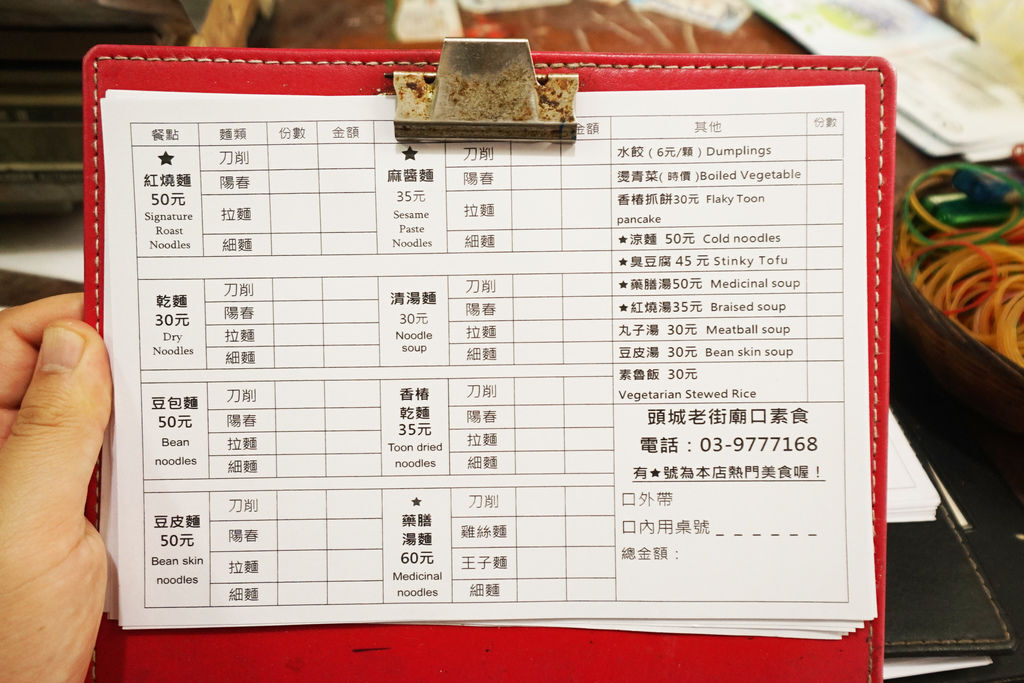 餐點 麵類 份數 金額
★
紅燒麵
50元
Signature
Roast
Noodles
刀削
陽春
拉麵
細麵
乾麵
30元
Dry
Noodles
刀削
陽春
拉麵
細麵
豆包麵
50元
Bean
noodles
刀削
陽春
拉麵
細麵
豆皮麵
50元
Bean skin
noodles
刀削
陽春
拉麵
細麵
金額
★
麻醬麵
35元
Sesame
Paste
Noodles
刀削
陽春
拉麵
細麵
清湯麵
30元
Noodle
soup
刀削
陽春
拉麵
細麵
香椿
乾麵
35元
Toon dried
noodles
刀削
陽春
拉麵
細麵
★
藥膳
湯麵
60元
Medicinal
noodles
刀削
雞絲麵
王子麵
細麵
其他 份數
水餃(6元/顆) Dumplings
燙青菜(時價)Boiled Vegetable
香椿抓餅30元 Flaky Toon
pancake
★涼麵 50元 Cold noodles
★臭豆腐 45 元 Stinky Tofu
★藥膳湯50元 Medicinal soup
★紅燒湯35元 Braised soup
丸子湯 30元 Meatball soup
豆皮湯 30元 Bean skin soup
素魯飯 30元
Vegetarian Stewed Rice
頭城老街廟口素食
電話：03-9777168
有★號為本店熱門美食喔！
口外帶
口內用桌號_ _ _ _ _ _
總金額：